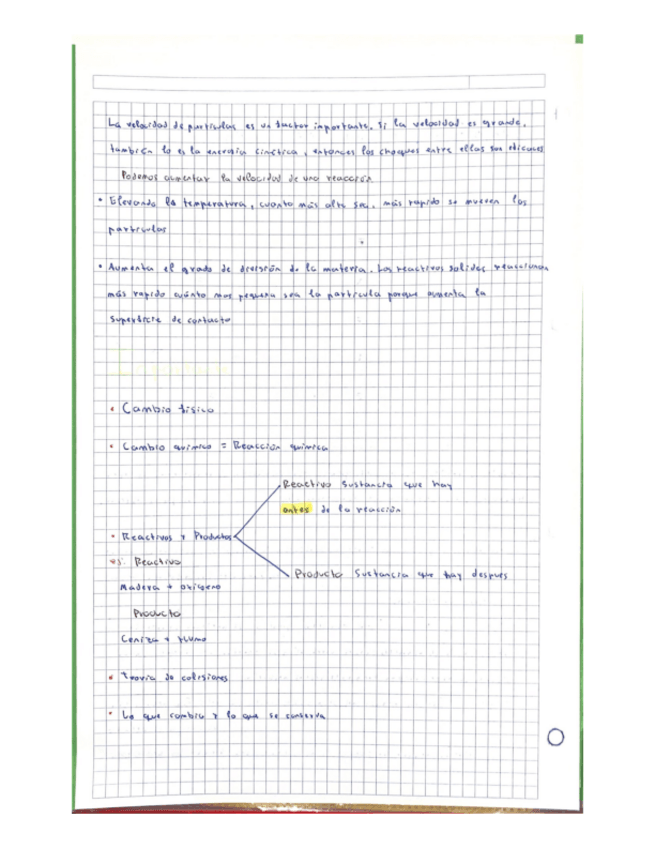 La velocidad de partículas es un factor importante. Si la velocidad es grande,
también lo es la energía cinética, entonces los choques entre ellas son eficaces
Podemos aumentar la velocidad de una reacción
• Elevando la temperatura, cuanto más alta sea, más rapido se mueven las
particulas
• Aumenta el grado de división de la materia. Los reactivos solidos reaccionan
más rapido cuánto mas pequeña sea la partícula porque aumenta la
superficie de contacto
• Cambio físico
• Cambio químico = Reacción química
Reactivo Sustancia que hay
antes de la reacción
• Reactivos y Productos
ej: Reactivo
Producto Sustancia que hay despues
Madera + oxigeno
Producto
Ceniza + Humo
• Teoría de colisiones
• Lo que cambia y lo que se conserva